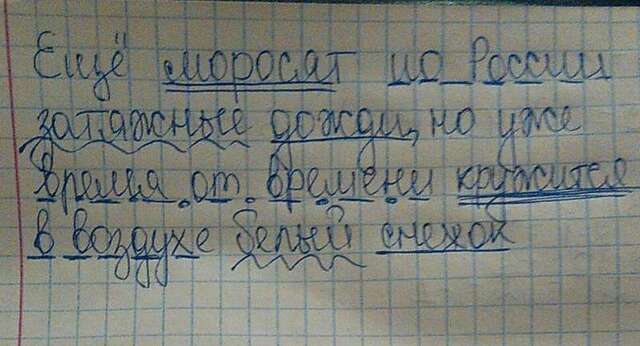 Ещё моросят по России
затяжные дожди, но уже
время от времени кружится
в воздухе белый снежок